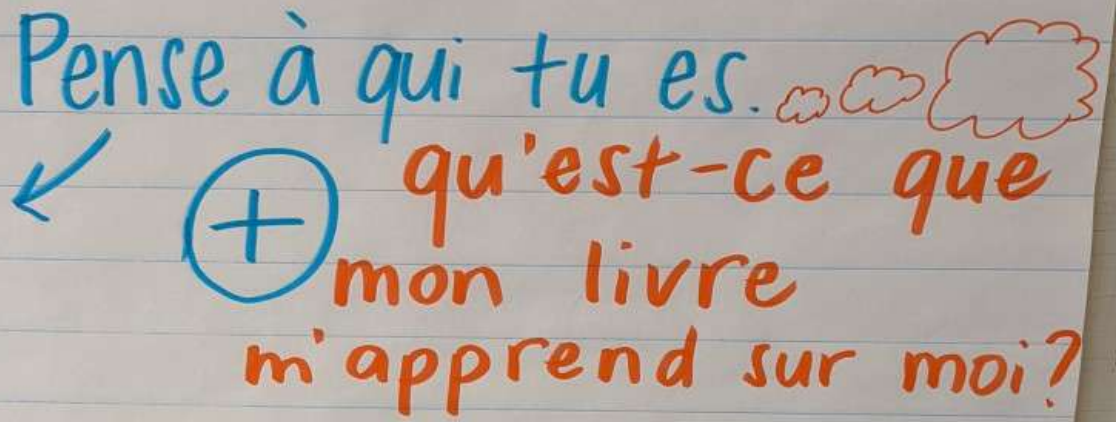 Pense à qui tu es.
+ qu'est-ce que
mon livre
m'apprend sur moi?